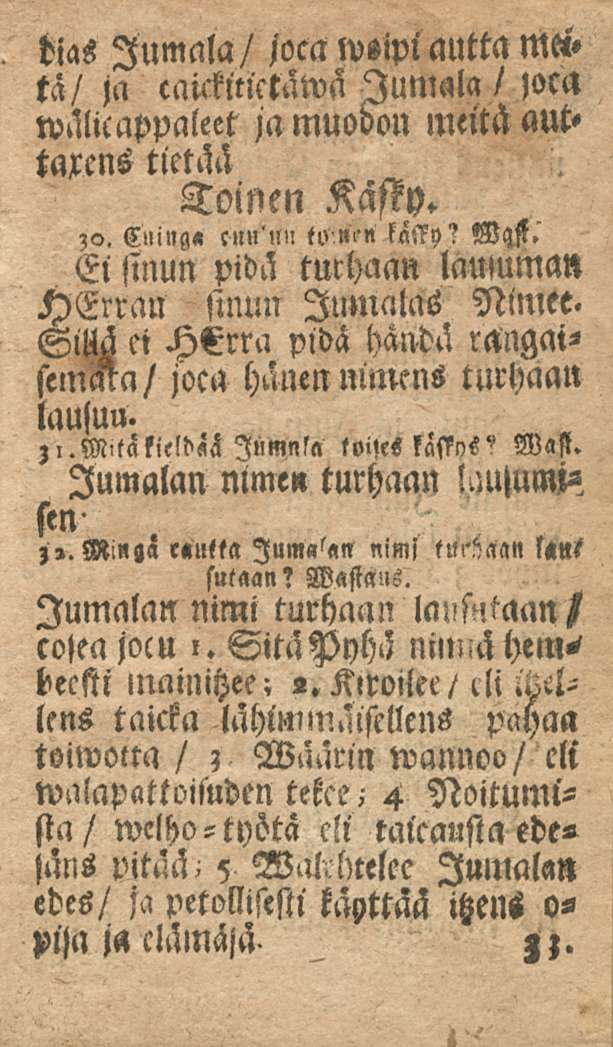 dias Jumala/ joca woipi autta mei-
tä/ ja caickitietäwä Jumala/ joca
wälicappaleet ja muodon meitä aut-
taxens tietää
Toinen Käsky.
30. Cuinga cuu'uu toinen käsky? Wast.
Ei sinun pidä turhaan lausuman
HErran sinun Jumalas Nimee.
Sillä ei HErra pidä händä rangai-
semata/ joca hänen nimens turhaan
lausuu.
31. Mitä kieldää Jumala toises käskys? Wast.
Jumalan nimen turhaan lausumi-
sen.
32. Mingä cautta Jumalan nimi turhaan lau-
sutaan? Wastaus.
Jumalan nimi turhaan lausutaan/
cosea jocu 1. Sitä Pyhä nimiä hem-
beesti mainitzee; 2. Kiroilee/ eli itzel-
lens taicka lähimmäisellens pahaa
toiwotta/ 3 Wäärin wannoo/ eli
walapattoisuden tekee; 4 Noitumi-
sta/ welho-työtä eli taicausta ede-
säns pitää; 5 Walehtelee Jumalan
edes/ ja petollisesti käyttää itzens o-
pisa ja elämäsä.
33.